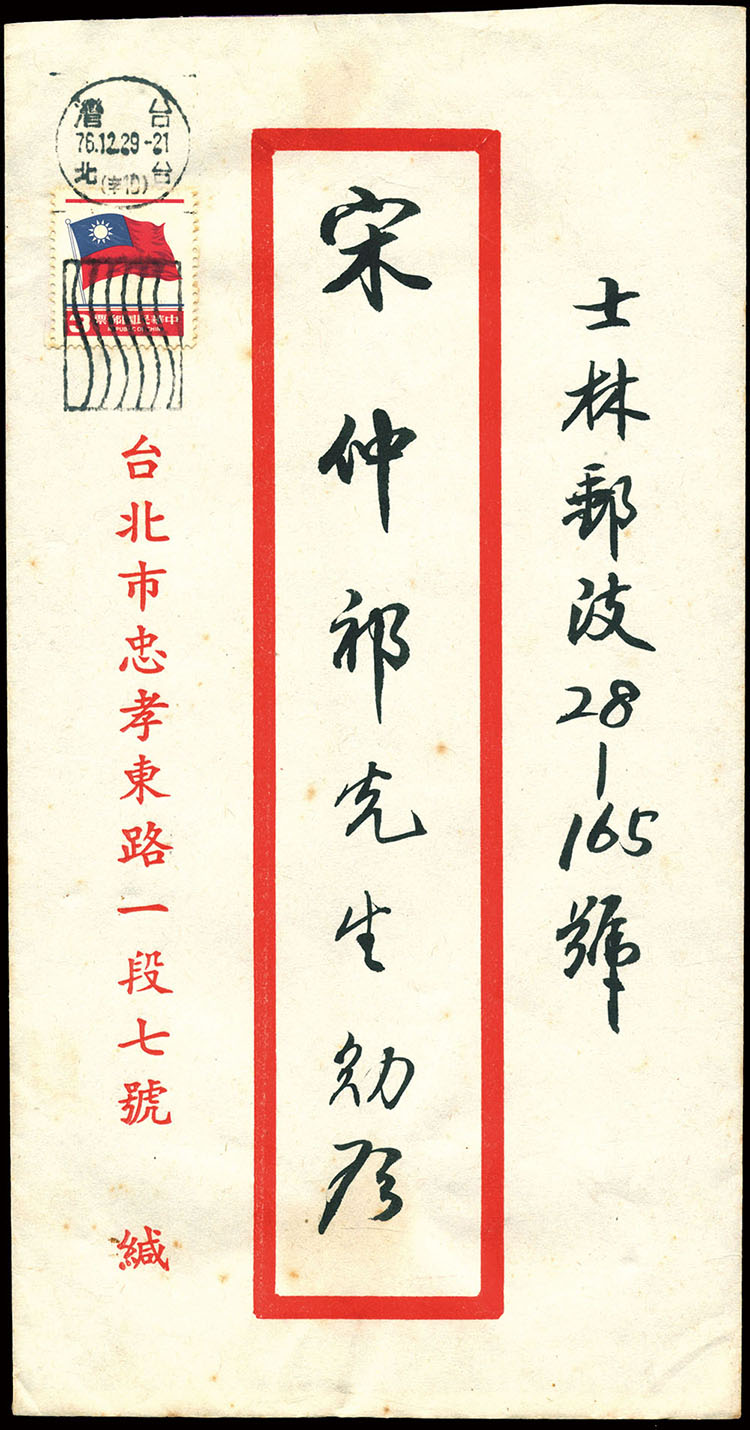 士林郵政28-165號
宋仲祁先生勛啟
台灣
76.12.29-21
台北
中華民國郵票
3
REPUBLIC OF CHINA
台北市忠孝東路一段七號 緘